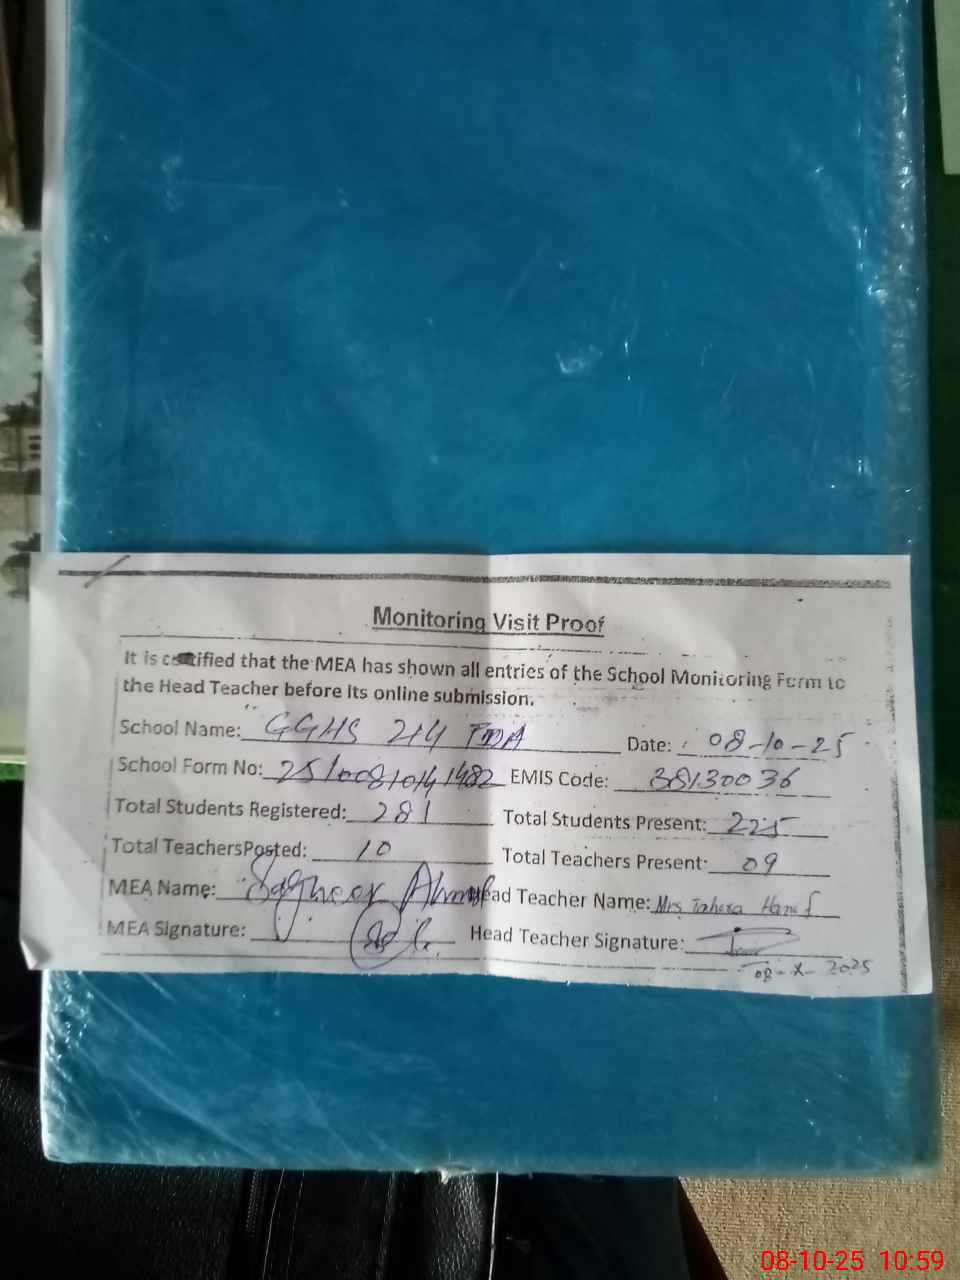 Monitoring Visit Proof
It is certified that the MEA has shown all entries of the School Monitoring Form to
the Head Teacher before its online submission.
School Name: GGHS 214 Date: 08-10-25
School Form No: EMIS Code: 38130036
Total Students Registered: 281 Total Students Present: 225
Total TeachersPosted: 10 Total Teachers Present: 09
MEA Name: Sagheer Ahmed Head Teacher Name: Mrs Tahira Hanif
MEA Signature: Head Teacher Signature:
08-X-2025
08-10-25 10:59